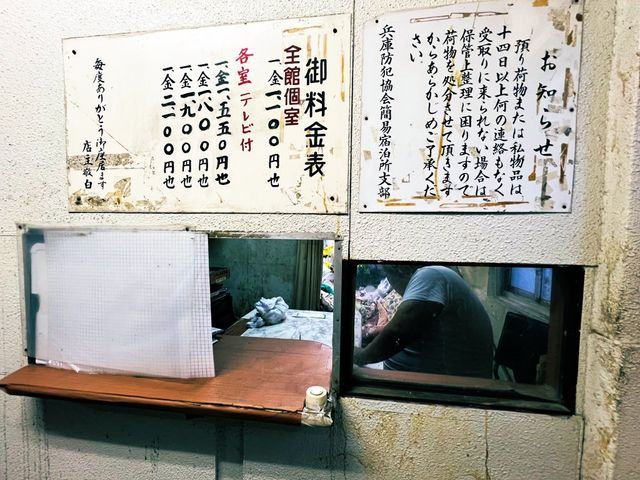 御料金表
全館個室
一金一一〇〇円也
各室テレビ付
一金一五五〇円也
一金一八〇〇円也
一金一九〇〇円也
一金二一〇〇円也
毎度ありがとう御座居ます
店主敬白
お知らせ
預り荷物または私物品は
十四日以上何の連絡もなく
受取りに来られない場合は
保管上整理に困りますので
荷物を処分させて頂きます
からあらかじめご了承くだ
さい
兵庫防犯協会簡易宿泊所支部